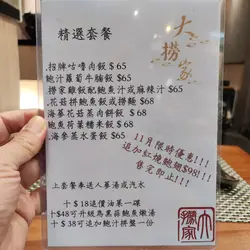 大撈家
精選套餐
.招牌咕嚕肉飯$65
鮑汁蘿蔔牛腩飯 $65
撈家雞飯配鮑魚汁或麻辣汁
.花菇拼鮑魚飯或撈麵 $68
海蔘花菇蒸肉餅飯 $68
鮑魚荷葉糯米飯 $68
.海參蒸水蛋飯 $65
11月限時優惠!!!
追加紅燒鮑翅$98!!!
售完即止!!!
上套餐奉送人蔘湯或汽水
+$18追價海茱一碟
+$48可升級烏黑蒜鮑魚燉湯
+$38可追加鮑汁拼盤一份
大撈家